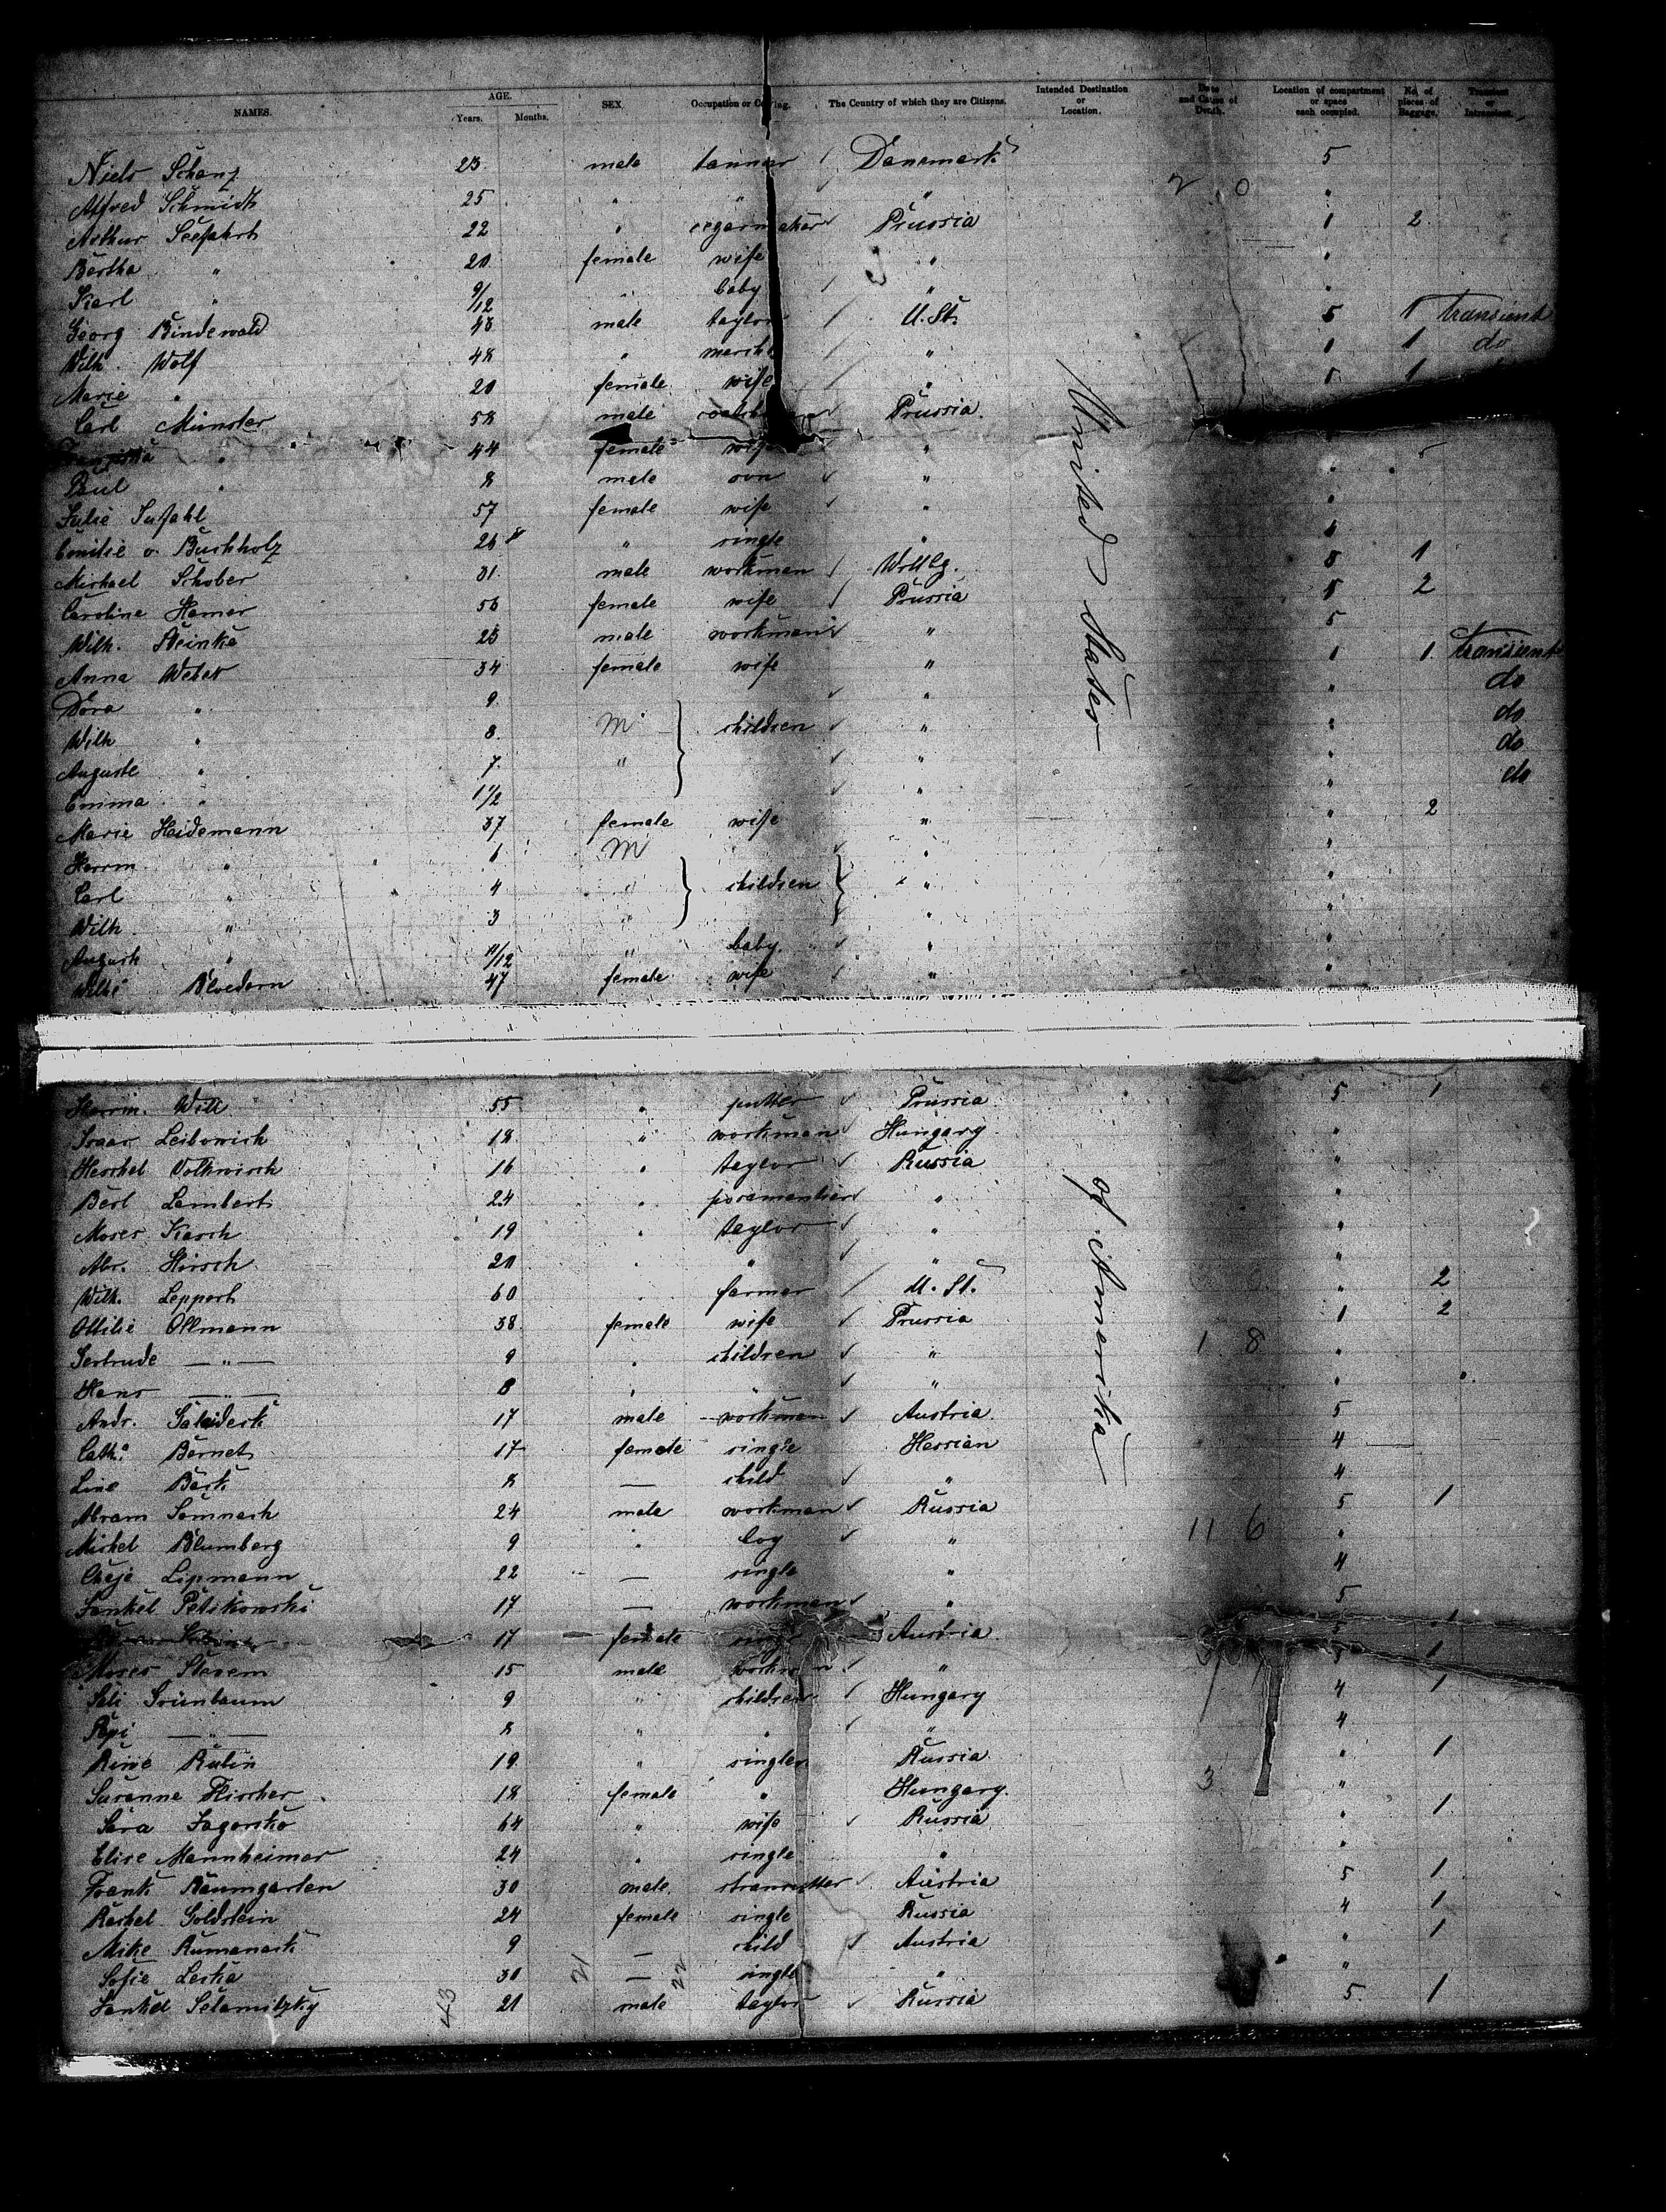 NAMES. AGE. SEX. Occupation or Calling. The Country of which they are Citizens. Intended Destination or Location. Date and Cause of Death. Location of compartment or space each occupied. No. of pieces of Baggage. Transient or Intransient.
Years. Months.
Niels Schanz 23 male Danemark 5
Alfred Schmidt 25 " " " "
Arthur Seefahrt 22 " Prussia 1 2
Bertha " 20 female wife " "
Karl " 9/12 " baby " "
Georg Bindewald 43 male taylor U. St. 5 1 transient
Wilh. Wolf 48 " " 1 1 do
Marie " 20 female wife " 1
Carl Münster 58 male Prussia
" 44 female wife "
Paul " 8 male son " "
Julie 57 female wife " "
Emilie v. Buchholz 26 " single "
Michael Schober 31 male workman 5 1
Caroline Hamer 56 female wife Prussia 1 2
Wilh. Steinke 25 male workman " 5
Anna Weber 34 female wife " 1 1 transient
Dora " 9 " " do
Wilh " 8 M children " " do
Auguste " 7 " " " do
Emma " 1 1/2 " " do
Marie Heidemann 37 female wife " " 2
Herrm. " 6 M " "
Carl " 4 " children " "
Wilh " 3 " " "
August " 11/12 " baby " "
47 female wife " "
United States
Herrm. Will 55 " Prussia 5 1
Isaac Leibowich 18 " workman Hungary "
Heschel Volkwisch 16 " taylor Russia "
Berl Lambert 24 " " "
Moses Karsch 19 " taylor " "
Abr. Hirsch 20 " " " "
Wilh. Leppert 60 " farmer U. St. " 2
Ottilie Ollmann 38 female wife Prussia 1 2
Gertrude — " — 9 " children " 1 8 "
Hans — " — 8 " " " "
Andr. 17 male workman Austria 5
Cath. Bernet 17 female single Hessian 4
Line Bäck 8 — child " 4
Abram Somnach 24 male workman Russia 5 1
Michel Blumberg 9 " boy " 11 6 "
Chaje Lipmann 22 — single " 4
Jankel Petrikowski 17 — workman " 5
17 female Austria
Moses 15 male workman " 1
Sali Grünbaum 9 " children Hungary 4 1
Pepi — " — 8 " " " 4
Rine Rubin 19 " single Russia " 1
Susanne Fischer 18 female " Hungary 3 "
Sara Jagorsko 64 " wife Russia " 1
Elise Mannheimer 24 " single " "
Frank Baumgarten 30 male Austria 5 1
Rachel Goldstein 24 female single Russia 4 1
Mike Rumanack 9 — child Austria " 1
Sofie Leska 30 — single " "
Jankel 21 male taylor Russia 5 1
of Amerika
43 21 22